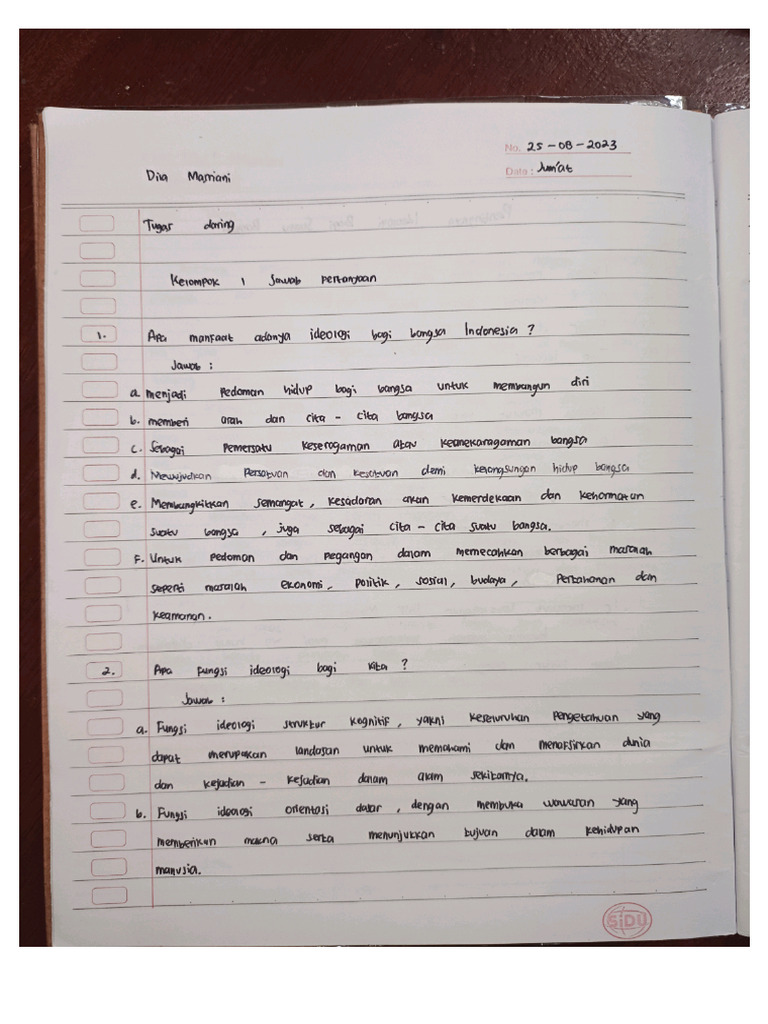 No. 25-08-2023
Dila Marriani
Date : Jum'at
Tugas daring
Kelompok 1 Jawab pertanyaan
1. Apa manfaat adanya ideologi bagi bangsa Indonesia ?
Jawab :
a. menjadi pedoman hidup bagi bangsa untuk membangun diri
b. memberi arah dan cita - cita bangsa
c. Sebagai pemersatu keseragaman atau keanekaragaman bangsa
d. Mewujudkan Persatuan dan kesatuan demi kelangsungan hidup bangsa
e. Membangkitkan semangat, kesadaran akan kemerdekaan dan kehormatan
suatu bangsa , juga sebagai cita - cita suatu bangsa.
F. Untuk pedoman dan pegangan dalam memecahkan berbagai masalah
seperti masalah ekonomi, politik, sosial, budaya, Pertahanan dan
keamanan.
2. Apa fungsi ideologi bagi kita ?
Jawab :
a. Fungsi ideologi struktur kognitif, yakni keseluruhan pengetahuan yang
dapat merupakan landasan untuk memahami dan menafsirkan dunia
dan kejadian - kejadian dalam alam sekitarnya.
b. Fungsi ideologi orientasi dasar, dengan membuka wawasan yang
memberikan makna serta menunjukkan tujuan dalam kehidupan
manusia.
SiDU